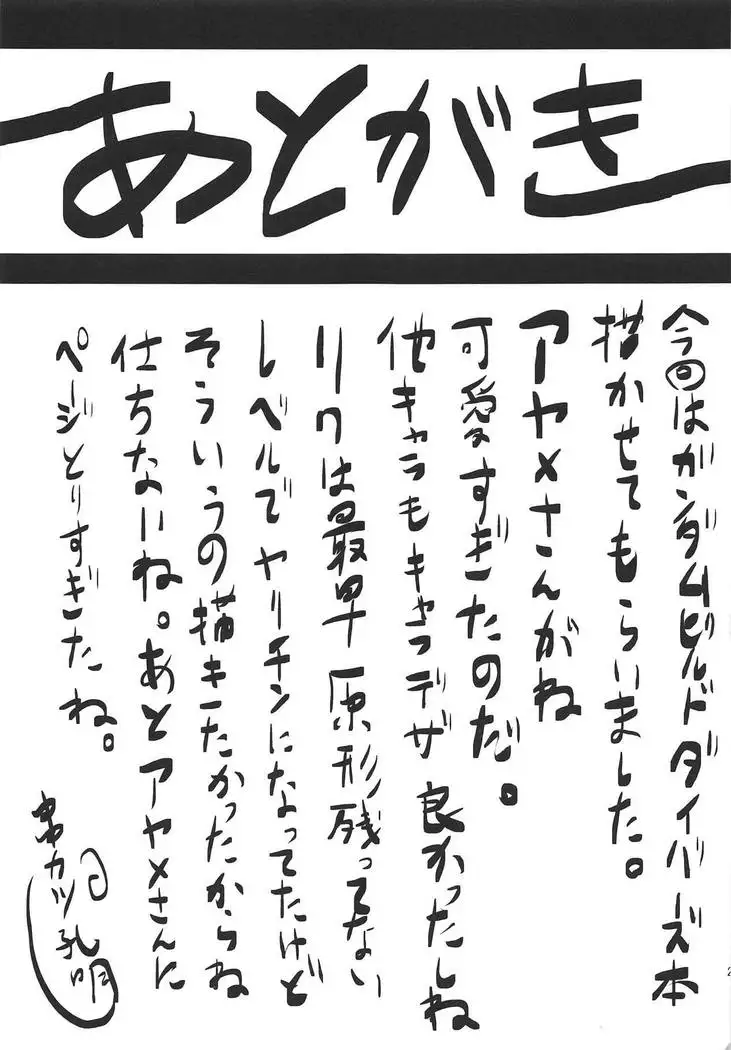 あとがき
今回はガンダムビルドダイバーズ本
描かせてもらいました。
アヤメさんがね
可愛すぎたのだ。
他キャラもキャラデザ良かったしね
リクは最早原形残ってない
レベルでヤリチンになってたけど
そういうの描きたかったからね
仕方ないね。あとアヤメさんに
ページとりすぎたね。
串カツ孔明
2